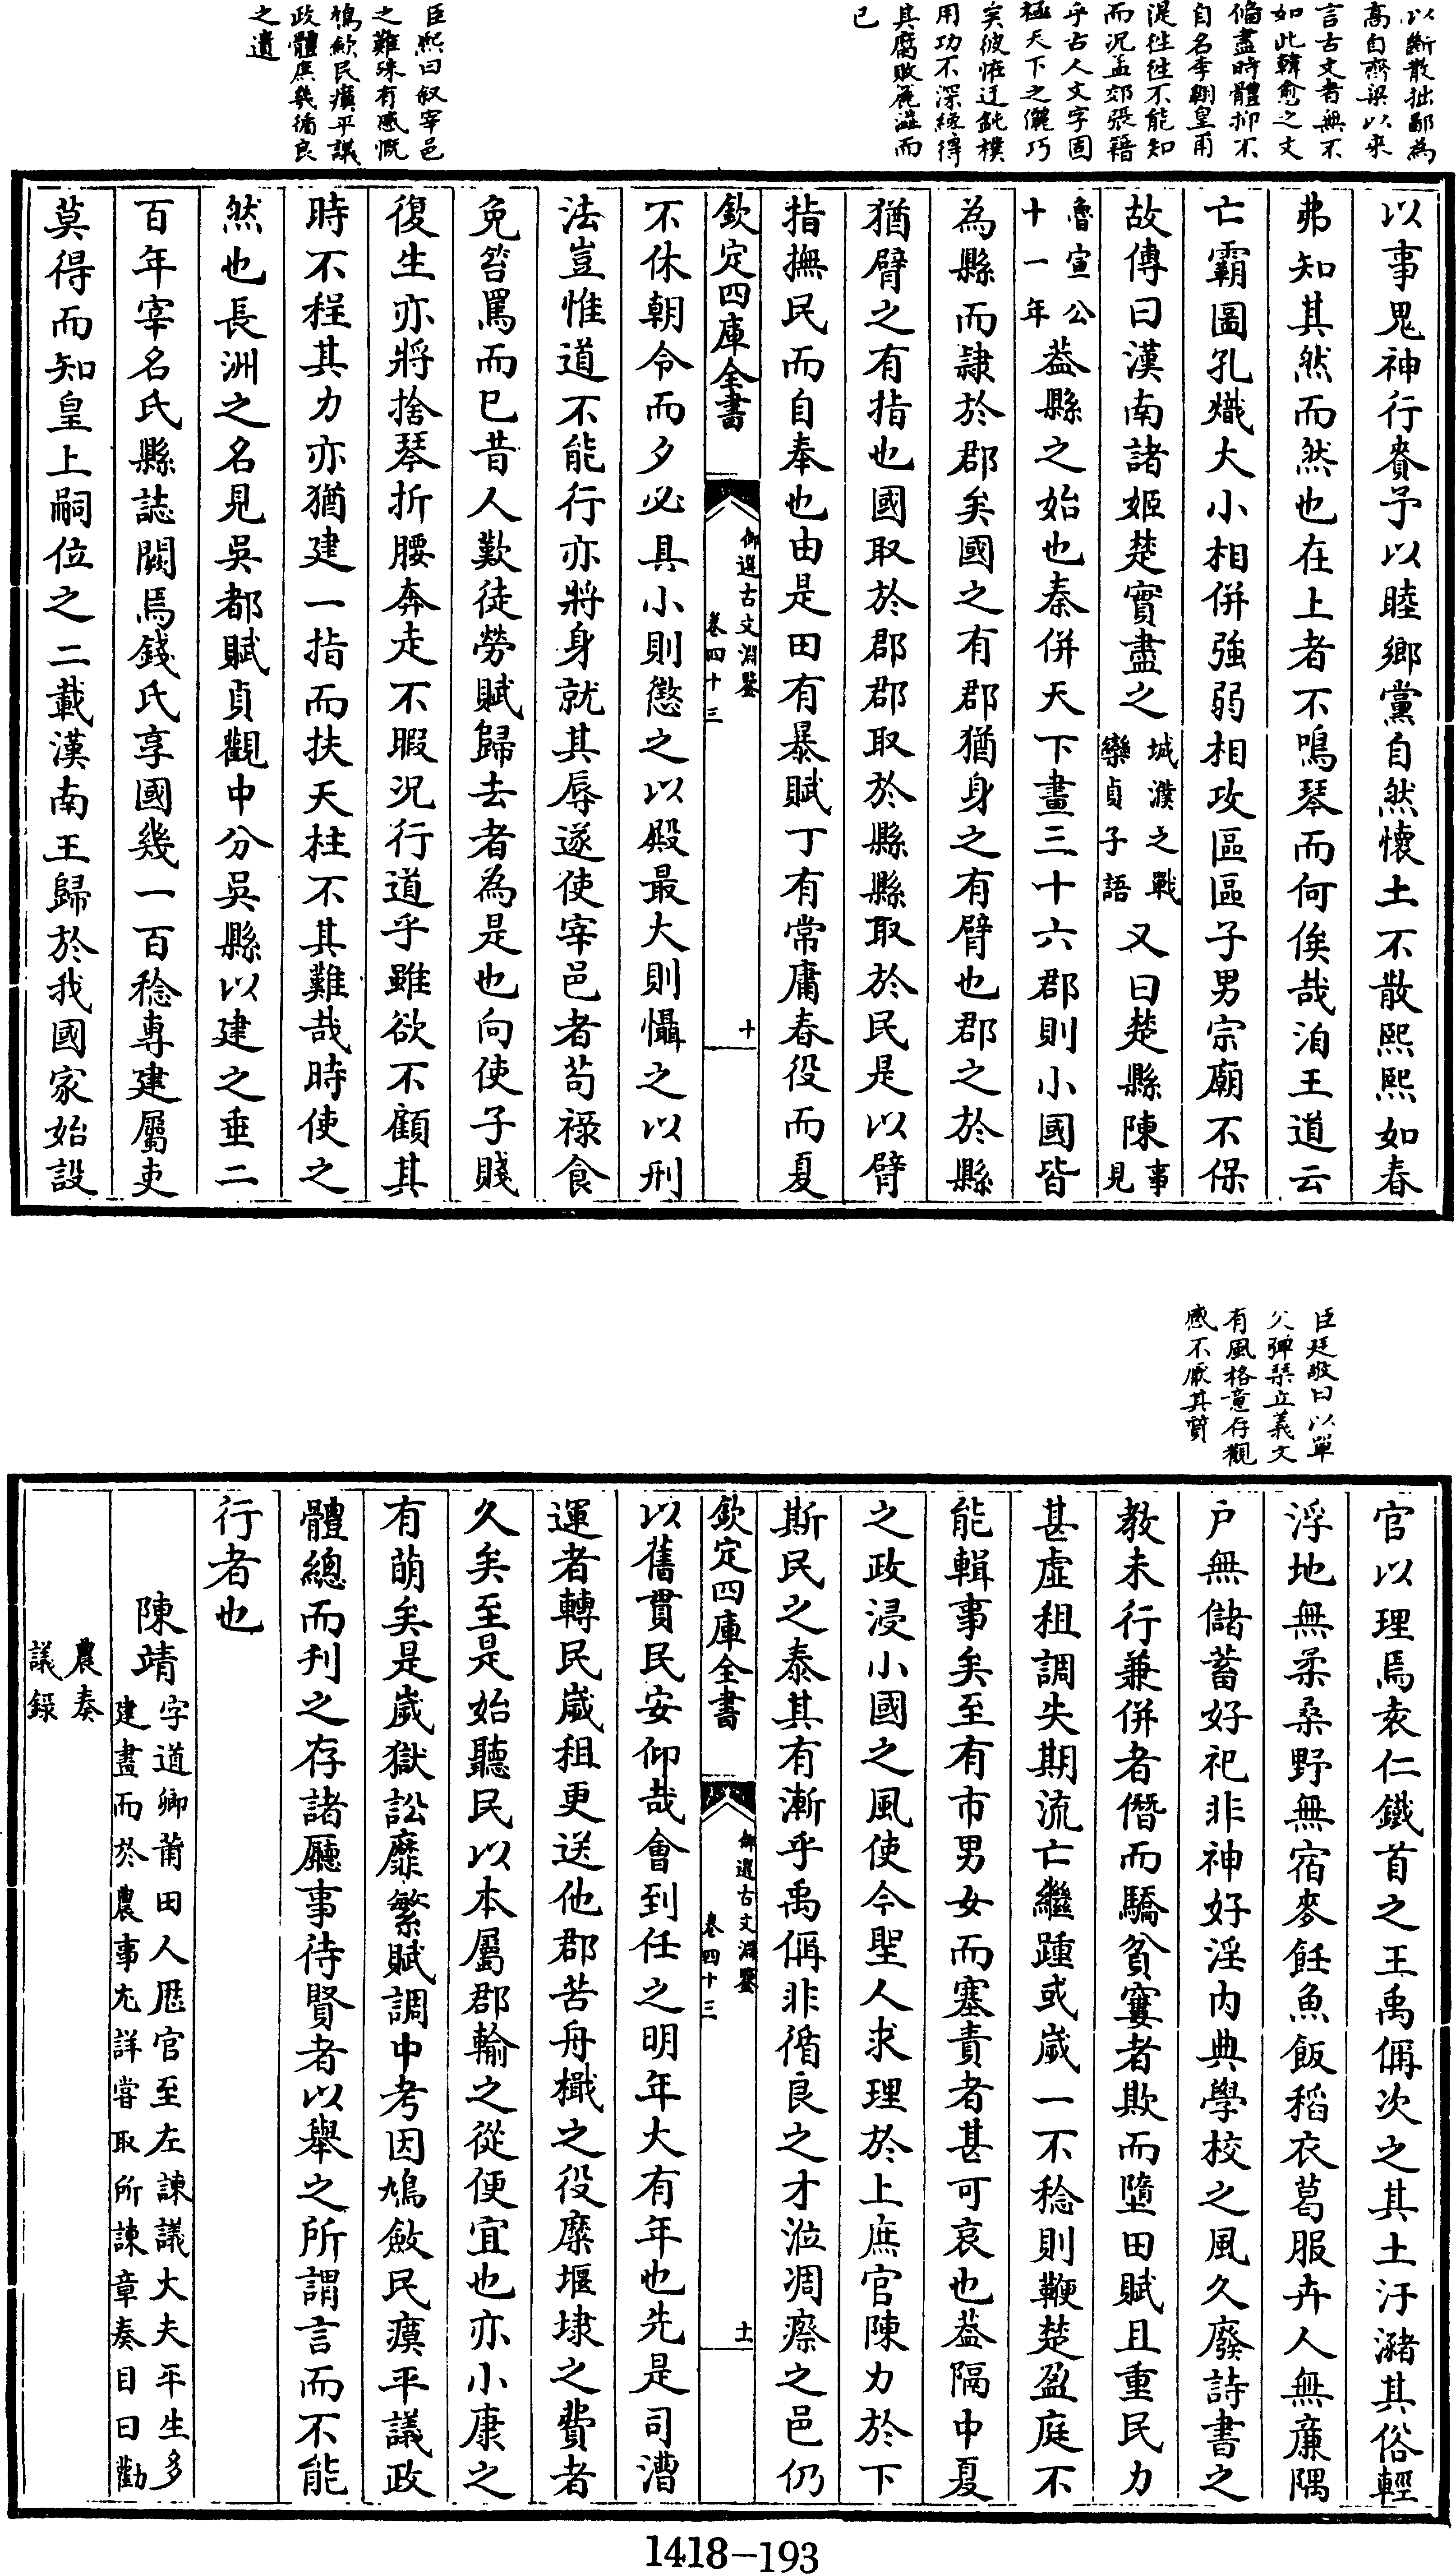 以斷散拙鄙為
高自齊梁以来
言古文者無不
如此韓愈之文
偹盡時體抑不
自名李翺皇甫
湜徃徃不能知
而况孟郊張籍
乎古人文字固
極天下之儷巧
矣彼恠迂鈍樸
用功不深纔得
其腐敗麄澀而
已
臣熙曰叙宰邑
之難殊有感慨
鳩歛民瘼平議
政體庶㡬循良
之遺
以事鬼神行賚予以睦鄉黨自然懷土不散熙熙如春
弗知其然而然也在上者不鳴琴而何俟哉洎王道云
亡霸圖孔熾大小相併強弱相攻區區子男宗廟不保
故傳曰漢南諸姬楚實盡之城濮之戰欒貞子語又曰楚縣陳事見
魯宣公十一年葢縣之始也秦併天下畫三十六郡則小國皆
為縣而隷於郡矣國之有郡猶身之有臂也郡之於縣
猶臂之有指也國取於郡郡取於縣縣取於民是以臂
指撫民而自奉也由是田有暴賦丁有常庸春役而夏
欽定四庫全書 御選古文淵鑒 卷四十三 十
不休朝令而夕必具小則懲之以殿最大則懾之以刑
法豈惟道不能行亦將身就其辱遂使宰邑者苟祿食
免笞罵而已昔人歎徒勞賦歸去者為是也向使子賤
復生亦將捨琴折腰奔走不暇况行道乎雖欲不顧其
時不程其力亦猶建一指而扶天柱不其難哉時使之
然也長洲之名見吳都賦貞觀中分吳縣以建之垂二
百年宰名氏縣誌闕焉錢氏享國幾一百稔專建屬吏
莫得而知皇上嗣位之二載漢南王歸於我國家始設
臣廷敬曰以單
父彈琴立義文
有風格意存觀
感不厭其質
官以理焉袁仁鐵首之王禹偁次之其土汙瀦其俗輕
浮地無柔桑野無宿麥飪魚飯稻衣葛服卉人無廉隅
戶無儲蓄好祀非神好淫內典學校之風久廢詩書之
教未行兼併者僭而驕貧窶者欺而墮田賦且重民力
甚虛租調失期流亡繼踵或歲一不稔則鞭楚盈庭不
能輯事矣至有市男女而塞責者甚可哀也葢隔中夏
之政浸小國之風使今聖人求理於上庶官陳力於下
斯民之泰其有漸乎禹偁非循良之才涖凋瘵之邑仍
欽定四庫全書 御選古文淵鑒 卷四十三 十一
以舊貫民安仰哉會到任之明年大有年也先是司漕
運者轉民歲租更送他郡苦舟檝之役糜堰埭之費者
久矣至是始聽民以本屬郡輸之從便宜也亦小康之
有萌矣是歲獄訟靡繁賦調中考因鳩斂民瘼平議政
體總而刋之存諸廳事待賢者以舉之所謂言而不能
行者也
陳靖字道卿莆田人歷官至左諫議大夫平生多建畫而於農事尤詳嘗取所諫章奏目曰勸
農奏議錄
1418-193